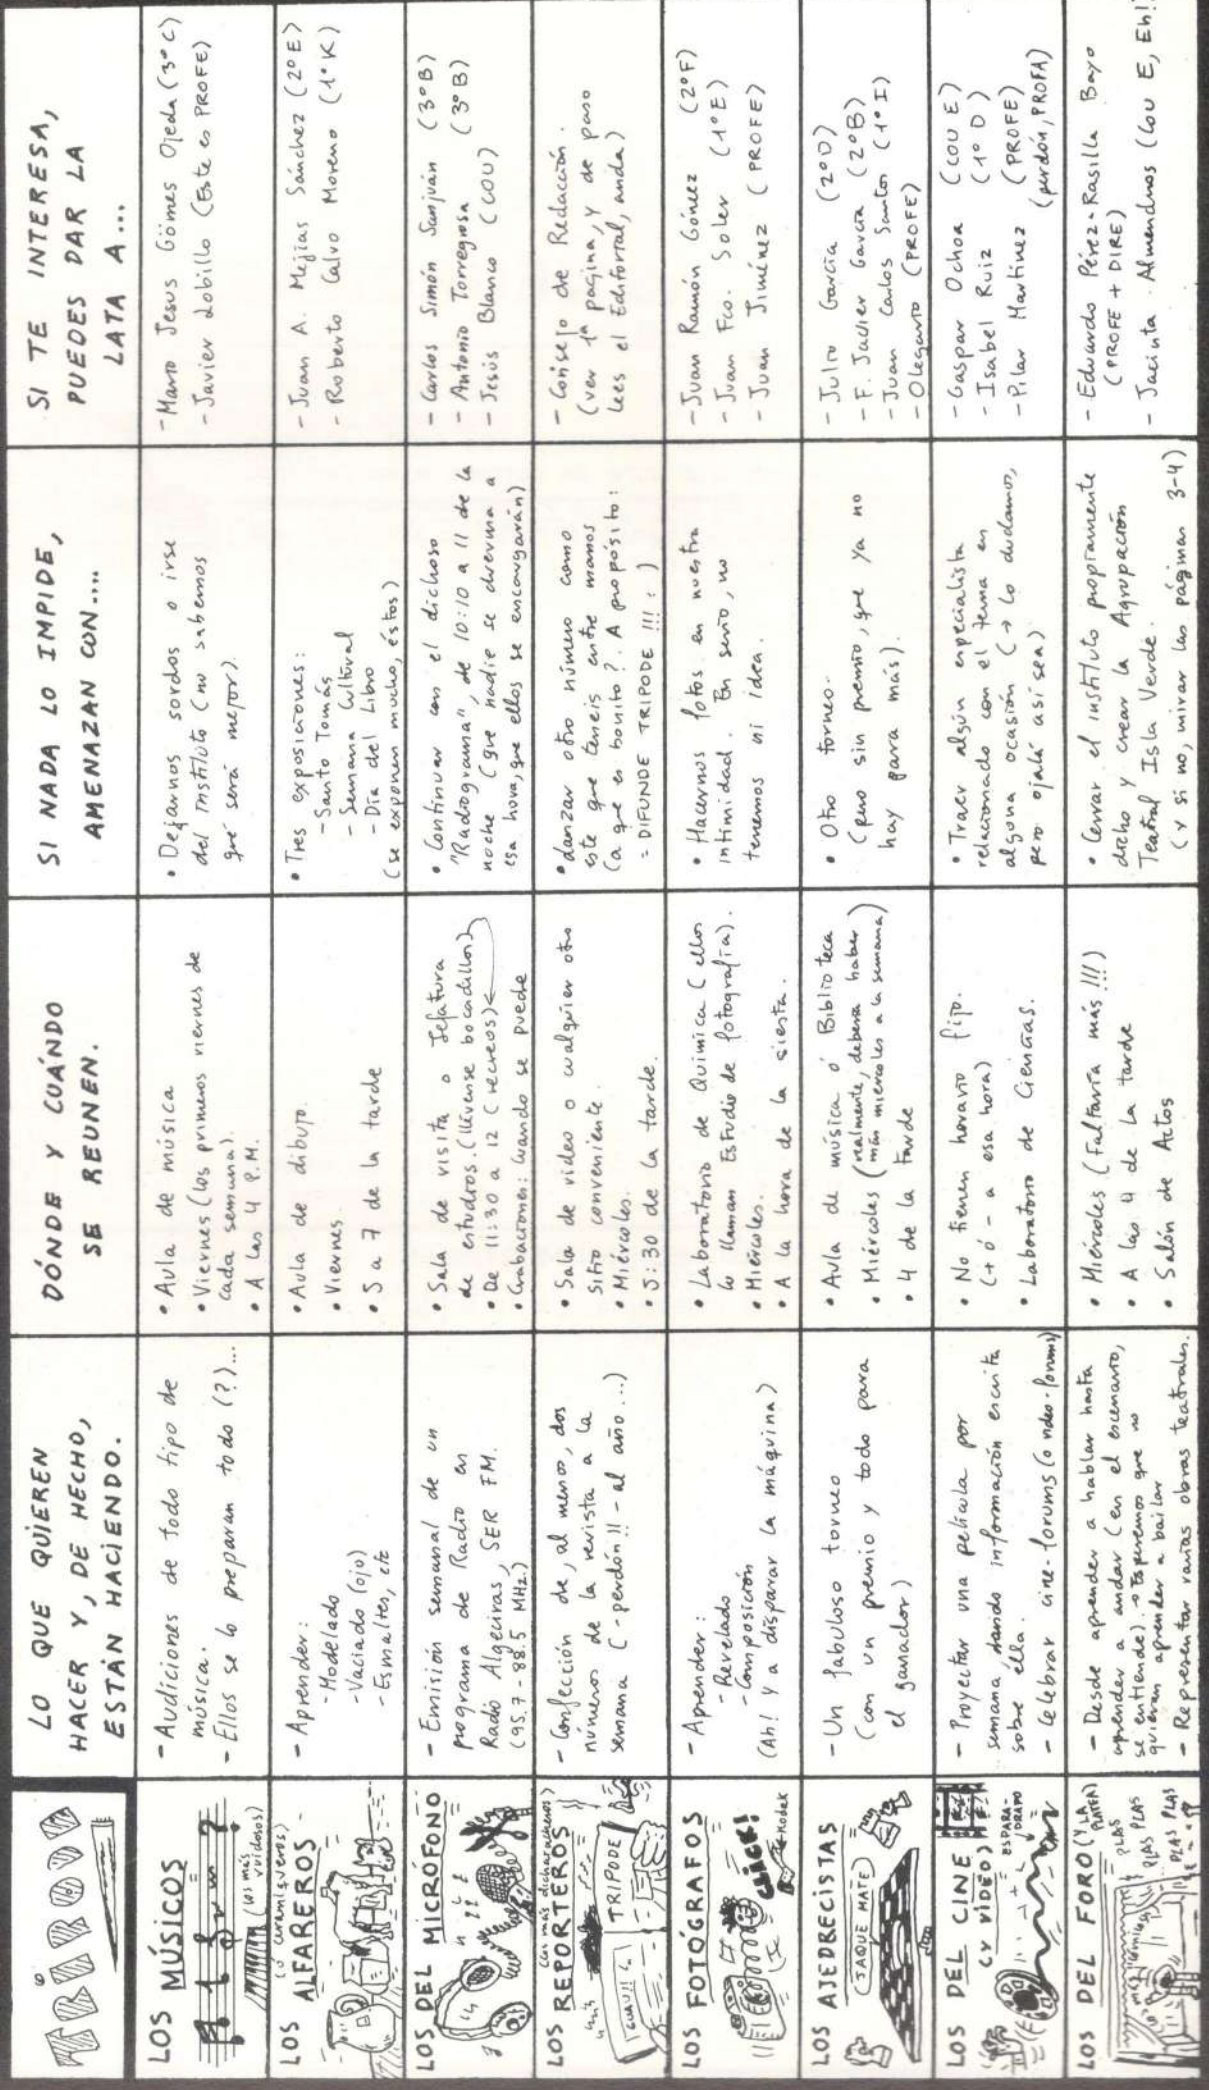 TRÍPODE
LO QUE QUIEREN
HACER Y, DE HECHO,
ESTÁN HACIENDO.
DÓNDE Y CUÁNDO
SE REUNEN.
SI NADA LO IMPIDE,
AMENAZAN CON....
SI TE INTERESA,
PUEDES DAR LA
LATA A...
LOS MÚSICOS
(los más ruidosos)
- Audiciones de todo tipo de
música.
- Ellos se lo preparan todo (?)...
• Aula de música
• Viernes (los primeros viernes de
cada semana).
• A las 4 P.M.
• Dejarnos sordos o irse
del Instituto (no sabemos
qué será mejor).
- Mario Jesus Gómes Ojeda (3º C)
- Javier Lobillo (Este es PROFE)
LOS ALFAREROS
(ó ceramiqueros)
- Aprender:
- Modelado
- Vaciado (ojo)
- Esmaltes, etc
• Aula de dibujo.
• Viernes.
• 5 a 7 de la tarde
• Tres exposiciones:
- Santo Tomás
- Semana Cultural
- Día del Libro
(se exponen mucho, éstos)
- Juan A. Mejías Sánchez (2º E)
- Roberto Calvo Moreno (1º K)
LOS DEL MICRÓFONO
- Emisión semanal de un
programa de Radio en
Radio Algeciras, SER FM.
(95.7 - 88.5 MHz.)
• Sala de visita o Jefatura
de estudios. (llévense bocadillos)
• De 11:30 a 12 (recreos)
• Grabaciones: Cuando se puede
• Continuar con el dichoso
"Radiograma", de 10:10 a 11 de la
noche (que nadie se duerma a
esa hora, que ellos se encargarán)
- Carlos Simón Sanjuán (3º B)
- Antonio Torregrosa (3º B)
- Jesús Blanco (COU)
LOS REPORTEROS
(Los más dicharacheros)
GUAU!!
TRIPODE
- Confección de, al menos, dos
números de la revista a la
semana (-perdón!!- al año...)
• Sala de video o cualquier otro
sitio conveniente.
• Miércoles.
• 5:30 de la tarde.
• Lanzar otro número como
este que teneis entre manos
(a que es bonito?. A propósito:
= DIFUNDE TRIPODE !!! = )
- Consejo de Redacción.
(ver 1ª página, y de paso
lees el Editorial, anda)
LOS FOTÓGRAFOS
CLICK!
Kodak
- Aprender:
- Revelado
- Composición
(Ah! y a disparar la máquina)
• Laboratorio de Química (ellos
lo llaman Estudio de fotografía).
• Miércoles.
• A la hora de la siesta.
• Hacernos fotos en nuestra
intimidad. En serio, no
tenemos ni idea.
- Juan Ramón Gónez (2º F)
- Juan Fco. Soler (1º E)
- Juan Jiménez (PROFE)
LOS AJEDRECISTAS
(JAQUE MATE)
- Un fabuloso torneo
(con un premio y todo para
el ganador)
• Aula de música ó Biblioteca
• Miércoles (realmente, debería haber
más miercoles a la semana)
• 4 de la tarde
• Otro torneo.
(pero sin premio, que ya no
hay para más).
- Julio García (2º D)
- F. Javier García (2º B)
- Juan Carlos Santos (1º I)
- Olegario (PROFE)
LOS DEL CINE
(Y VIDEO)
ESPARA-
DRAPO
- Proyectar una película por
semana, dando información escrita
sobre ella.
- Celebrar cine-forums (o video-forums)
• No tienen horario fijo.
(+ ó - a esa hora)
• Laboratorio de Ciencias.
• Traer algún especialista
relacionado con el tema en
alguna ocasión (→ lo dudamos,
pero ojalá así sea)
- Gaspar Ochoa (COU E)
- Isabel Ruiz (1º D)
- Pilar Martínez (PROFE)
(perdón, PROFA)
LOS DEL FORO (Y LA PLATEA)
PLAS
PLAS PLAS
PLAS PLAS
- Desde aprender a hablar hasta
aprender a andar (en el escenario,
se entiende). → Esperemos que no
quieran aprender a bailar
- Representar varias obras teatrales.
• Miércoles (Faltaría más!!!)
• A las 4 de la tarde
• Salón de Actos
• Cerrar el instituto propiamente
dicho y crear la Agrupación
Teatral Isla Verde.
(Y si no, mirar las páginas 3-4)
- Eduardo Pérez-Rasilla Bayo
(PROFE + DIRE)
- Jacinta Almendros (COU E, Eh!)